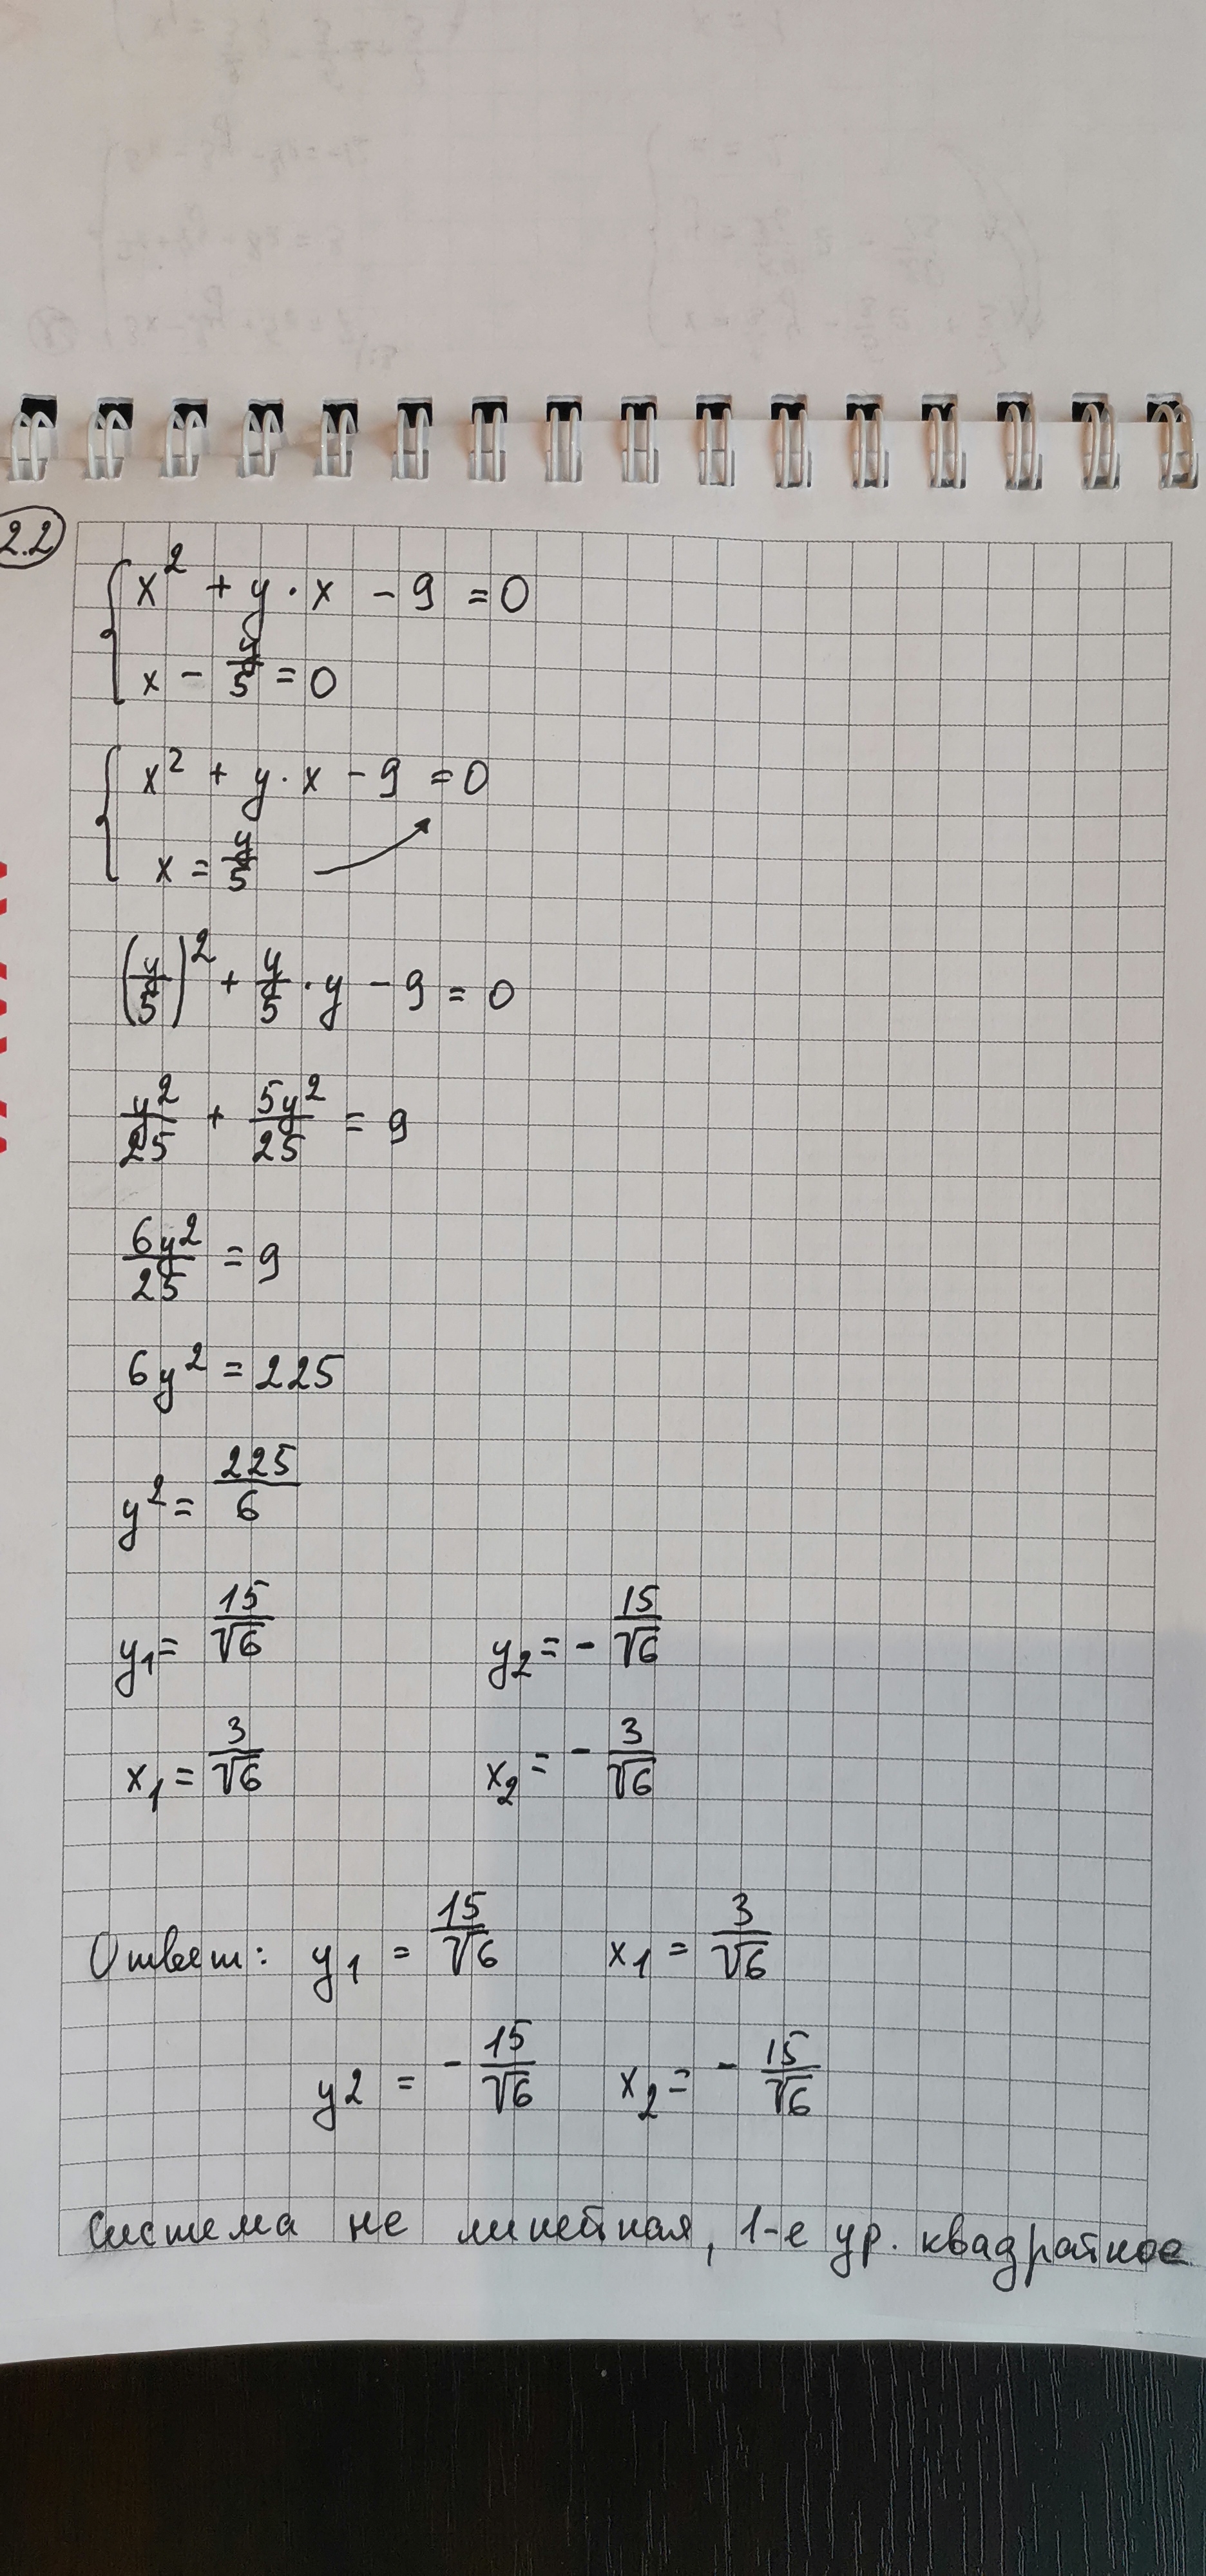 2.2
x² + y · x - 9 = 0
x - y/5 = 0
x² + y · x - 9 = 0
x = y/5
(y/5)² + y/5 · y - 9 = 0
y²/25 + 5y²/25 = 9
6y²/25 = 9
6y² = 225
y² = 225/6
y₁ = 15/√6 y₂ = - 15/√6
x₁ = 3/√6 x₂ = - 3/√6
Ответ: y₁ = 15/√6 x₁ = 3/√6
y2 = - 15/√6 x₂ = - 15/√6
система не линейная, 1-е ур. квадратное